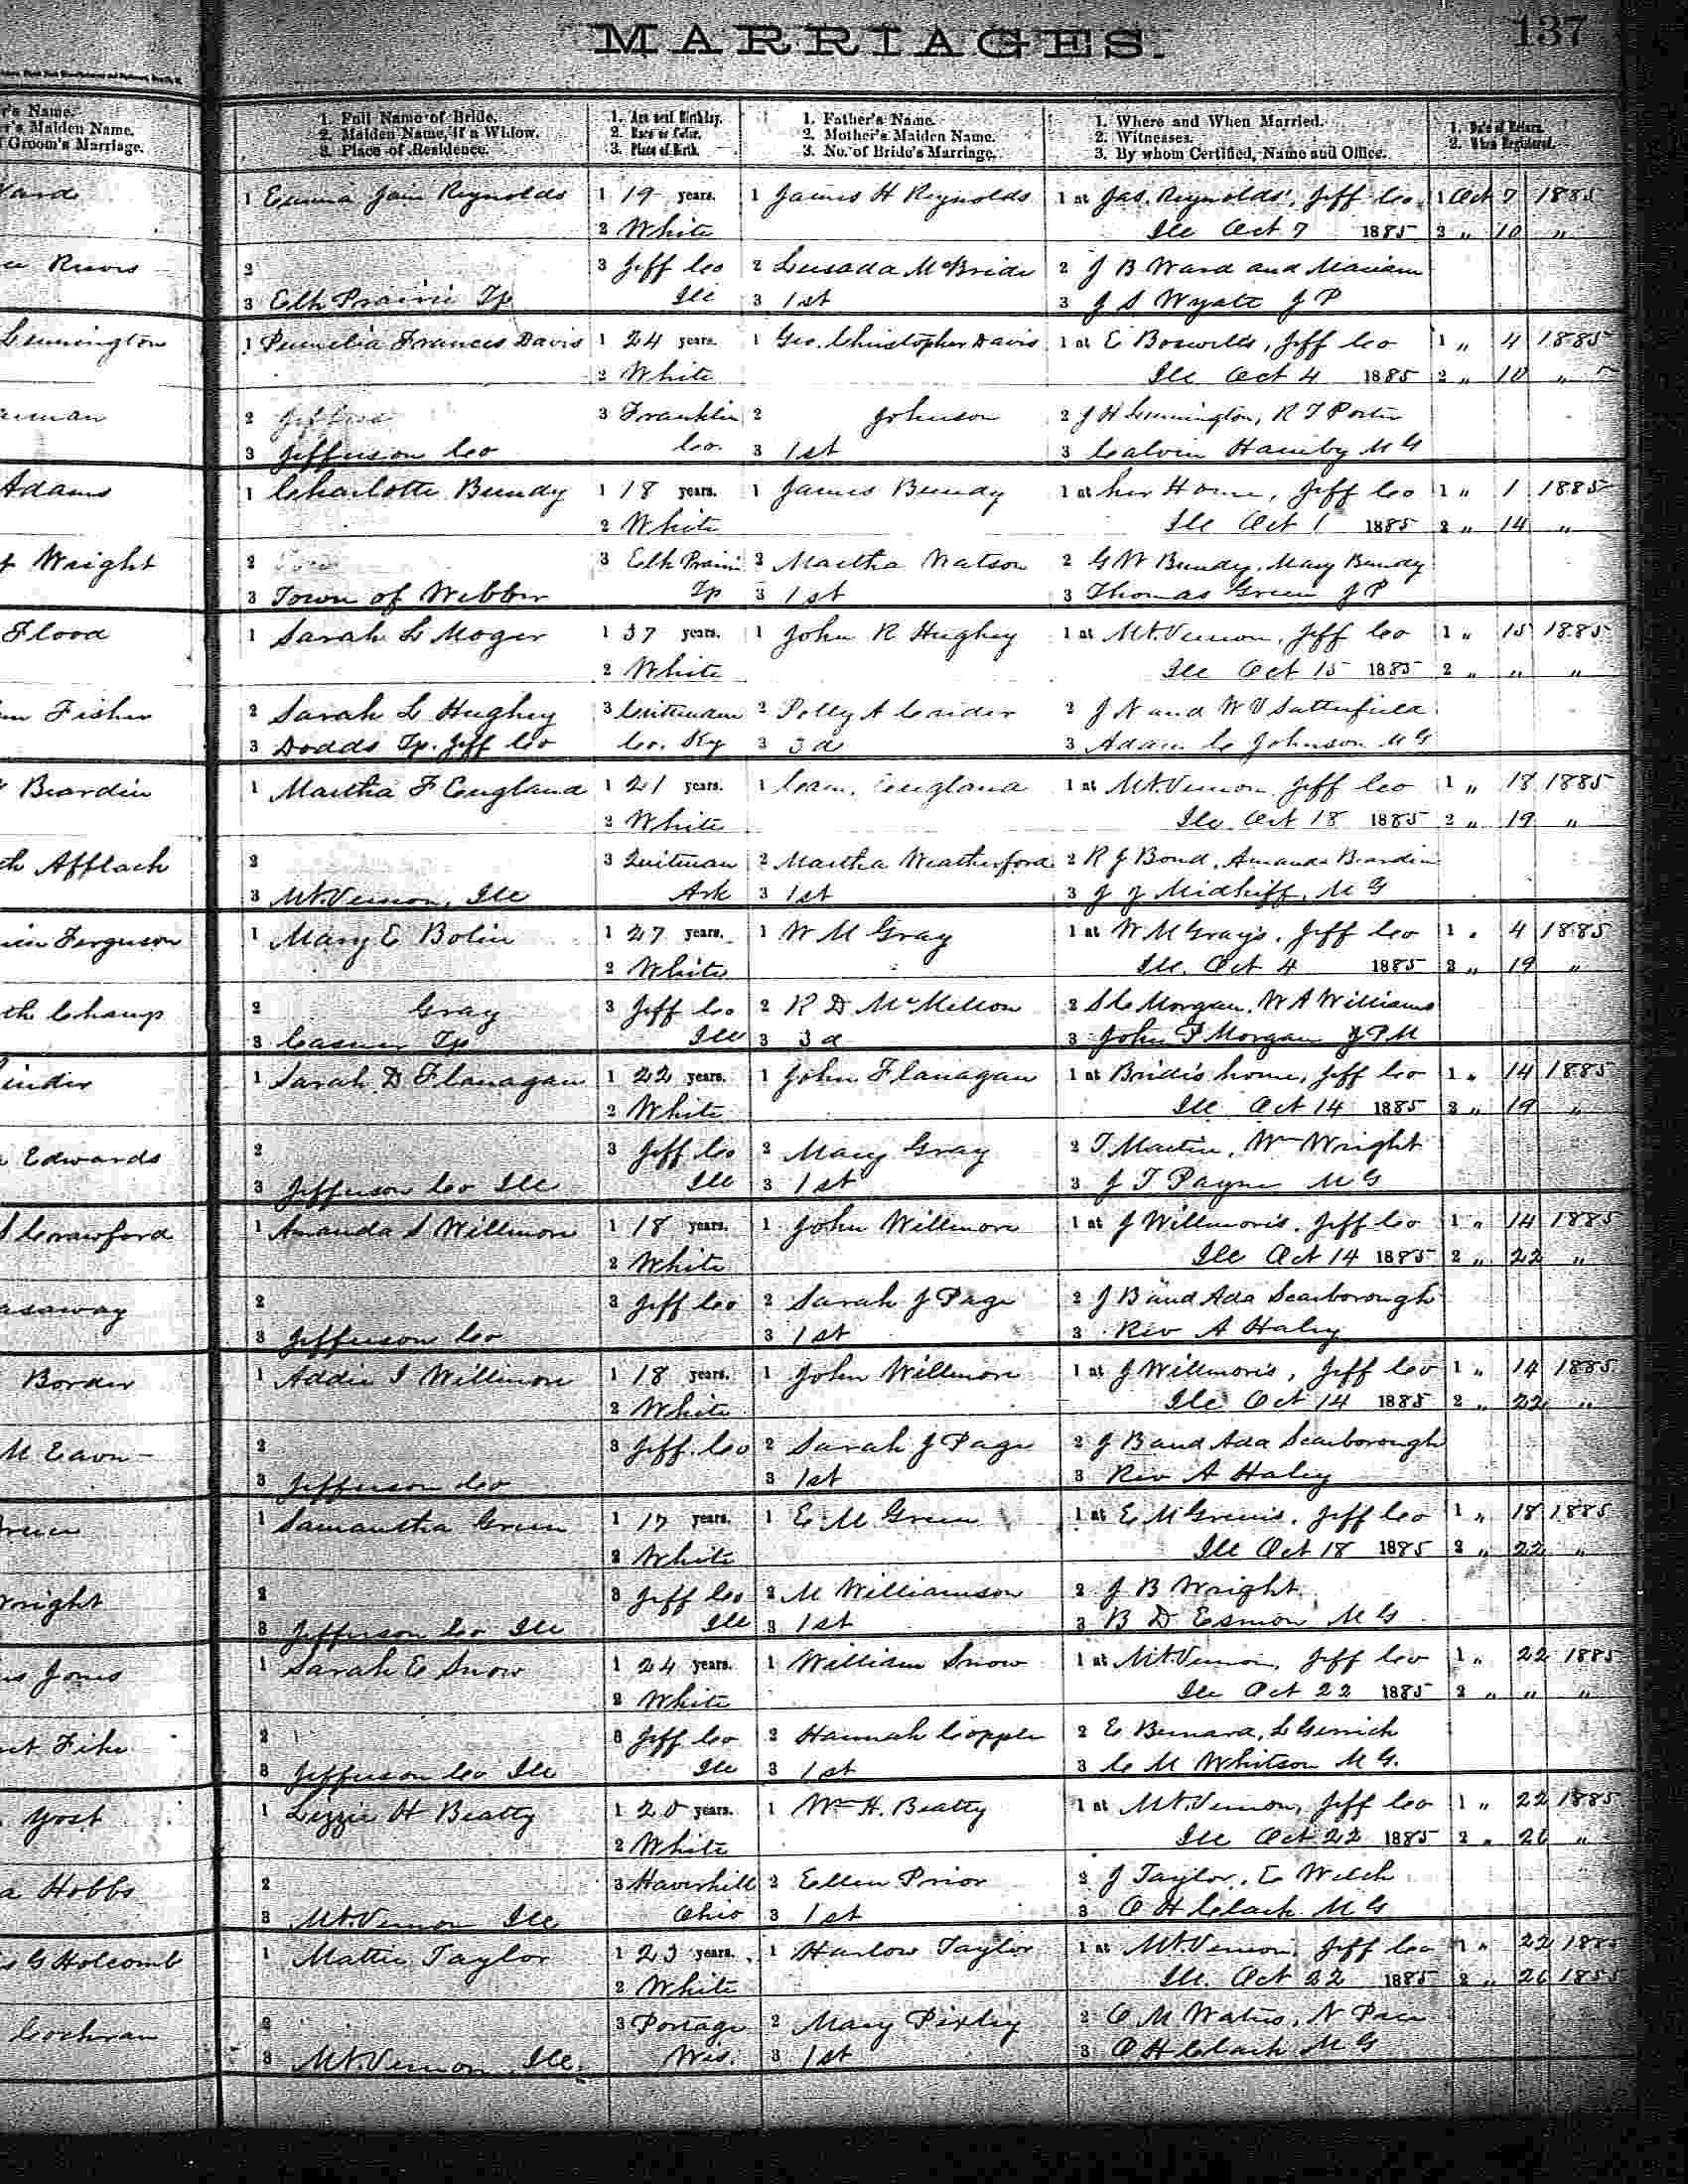 MARRIAGES. 137
r's Name. 1. Full Name of Bride. 1. Age next Birthday. 1. Father's Name. 1. Where and When Married. 1. Date of Return.
r's Maiden Name. 2. Maiden Name, if a Widow. 2. Race or Color. 2. Mother's Maiden Name. 2. Witnesses. 2. When Registered.
Groom's Marriage. 3. Place of Residence. 3. Place of Birth. 3. No. of Bride's Marriage. 3. By whom Certified, Name and Office.
Ward 1 Emma Jain Reynolds 1 19 years. 1 James H Reynolds 1 at Jas. Reynolds', Jeff Co, 1 Oct 7 1885
2 White Ill Oct 7 1885 2 " 10 "
2 3 Jeff Co 2 Lusada McBride 2 J B Ward and Mariam
3 Elk Prairie Tp Ill 3 1st 3 J S Wyatt J P
1 Frances Davis 1 24 years. 1 Geo. Christopher Davis 1 at E Boswell's, Jeff Co 1 " 4 1885
2 White Ill Oct 4 1885 2 " 10 "
2 3 Franklin 2 Johnson 2 J H R T Porter
3 Jefferson Co Co. 3 1st 3 Calvin M G
Adams 1 Charlotte Bundy 1 18 years. 1 James Bundy 1 at her Home, Jeff Co 1 " 1 1885
2 White Ill Oct 1 1885 2 " 14 "
Wright 2 3 Elk Prairi 2 Martha Watson 2 G W Bundy, Mary Bundy
3 Town of Webber Tp 3 1st 3 Thomas Green J P
Flood 1 Sarah L Moger 1 37 years. 1 John R Hughey 1 at Mt. Vernon, Jeff Co 1 " 15 1885
2 White Ill Oct 15 1885 2 " " "
Fisher 2 Sarah L Hughey 3 Crittendan 2 Polly A Crider 2 J N and W V Satterfield
3 Dodds Tp. Jeff Co Co. Ky 3 3d 3 Adam C Johnson M G
Beardin 1 Martha F England 1 21 years. 1 England 1 at Mt. Vernon Jeff Co 1 " 18 1885
2 White Ill Oct 18 1885 2 " 19 "
Afflack 2 3 Quitman 2 Martha Weatherford 2 R J Bond, Amanda Beardin
3 Mt. Vernon, Ill Ark 3 1st 3 J J Midkiff, M G
Ferguson 1 Mary E Bolin 1 27 years. 1 W M Gray 1 at W M Gray's, Jeff Co 1 " 4 1885
2 White Ill. Oct 4 1885 2 " 19 "
th Champ 2 Gray 3 Jeff Co 2 R D McMellon 2 S C Morgan, W A Williams
3 Casner Tp Ill 3 3d 3 John P Morgan J P M
1 Sarah D Flanagan 1 22 years. 1 John Flanagan 1 at Bride's home, Jeff Co 1 " 14 1885
2 White Ill Oct 14 1885 2 " 19 "
Edwards 2 3 Jeff Co 2 Mary Gray 2 T Martin, Wm Wright
3 Jefferson Co Ill Ill 3 1st 3 J T Payne M G
Crawford 1 Amanda S Willmore 1 18 years. 1 John Willmore 1 at J Willmore's, Jeff Co 1 " 14 1885
2 White Ill Oct 14 1885 2 " 22 "
asaway 2 3 Jeff Co 2 Sarah J Page 2 J B and Ada Scarborough
3 Jefferson Co 3 1st 3 Rev A Haley
Border 1 Addie I Willmore 1 18 years. 1 John Willmore 1 at J Willmore's, Jeff Co 1 " 14 1885
2 White Ill Oct 14 1885 2 " 22 "
2 3 Jeff. Co 2 Sarah J Page 2 J B and Ada Scarborough
3 Jefferson Co 3 1st 3 Rev A Haley
1 Samantha Green 1 17 years. 1 E M Green 1 at E M Green's, Jeff Co 1 " 18 1885
2 White Ill Oct 18 1885 2 " 22 "
Wright 2 3 Jeff Co 2 M Williamson 2 J B Wright
3 Jefferson Co Ill Ill 3 1st 3 B D Esmon M G
Jones 1 Sarah E Snow 1 24 years. 1 William Snow 1 at Mt. Vernon, Jeff Co 1 " 22 1885
2 White Ill Oct 22 1885 2 " " "
2 3 Jeff Co 2 Hannah Copple 2 E Bernard,
3 Jefferson Co Ill Ill 3 1st 3 C M Whitson M G.
Yost 1 Lizzie H Beatty 1 20 years. 1 Wm H. Beatty 1 at Mt. Vernon, Jeff Co 1 " 22 1885
2 White Ill Oct 22 1885 2 " 26 "
Hobbs 2 3 Haverhill 2 Ellen Prior 2 J Taylor, E Welch
3 Mt. Vernon Ill Ohio 3 1st 3 O H Clark M G
G Holcomb 1 Mattie Taylor 1 23 years. 1 Harlow Taylor 1 at Mt. Vernon, Jeff Co 1 " 22 1885
2 White Ill. Oct 22 1885 2 " 26 1885
Cochran 2 3 Portage 2 Mary Pixley 2 O M Waters, N Pace
3 Mt. Vernon Ill. Wis. 3 1st 3 O H Clark M G